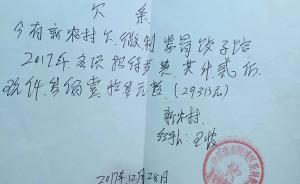 欠条
今有新农村欠傲制紧岗饺子馆
2017年各项招待费 共计贰万
玖仟叁佰壹拾叁元整(29313元)
新农村
经手人:王
2017年12月28日